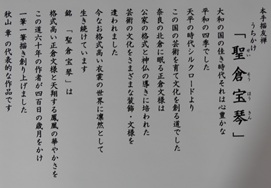 本手描友禅
うちかけ
「聖倉宝琴」
大和の国の佳き時代それは心豊かな
平和の四季でした
天平の時代シルクロードより
この国の芸術を育て文化を創る道でした
奈良の北倉に眠る正倉文様は
公家の格式と神仏の導きに培われた
芸術の文化をさまざまな装飾・文様を
遺われました
今なお格式高い衣裳の世界に凛然として
生き続けています
銘「聖倉宝琴」は
格式高い正倉文様と天翔する鳳凰の華やかさを
この道六十年の作者が四百日の歳月をかけ
一筆一筆描き創り上げました
秋山 章 の代表的な作品です